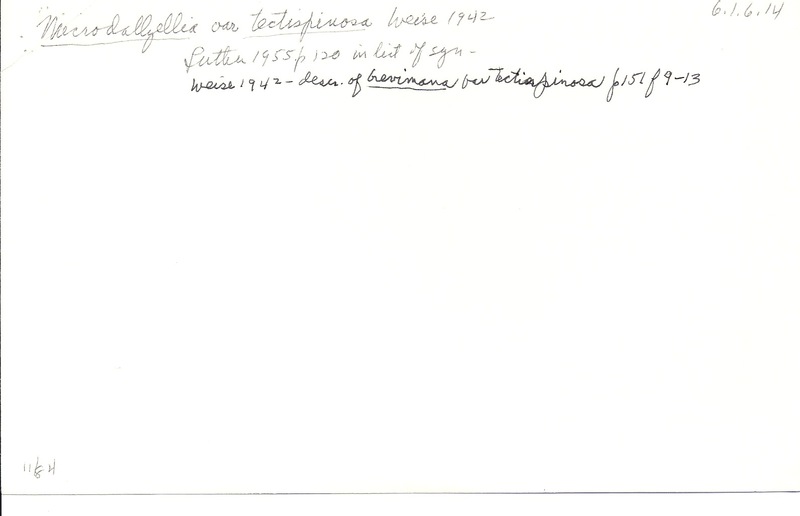 Microdallyellia var tectispinosa Weise 1942
6.1.6.14
Luther 1955 p 120 in list of syn -
Weise 1942 - descr. of brevimana var tectispinosa p151 f 9-13